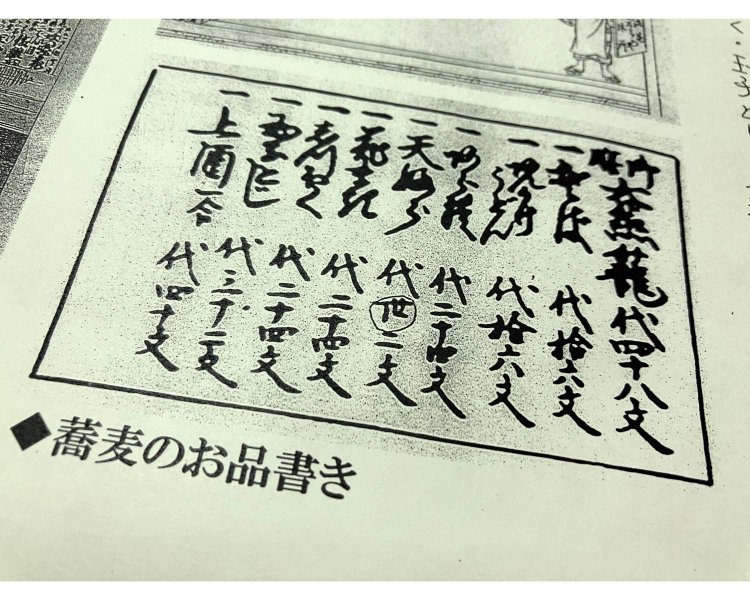 御膳大蒸籠 代四十八文
一 そば 代拾六文
一 あんかけうどん 代拾六文
一 あられ 代二十四文
一 天ぷら 代卅二文
一 花まき 代二十四文
一 しっぽく 代二十四文
一 玉子とじ 代三十二文
一 上酒一合 代四十文
◆蕎麦のお品書き